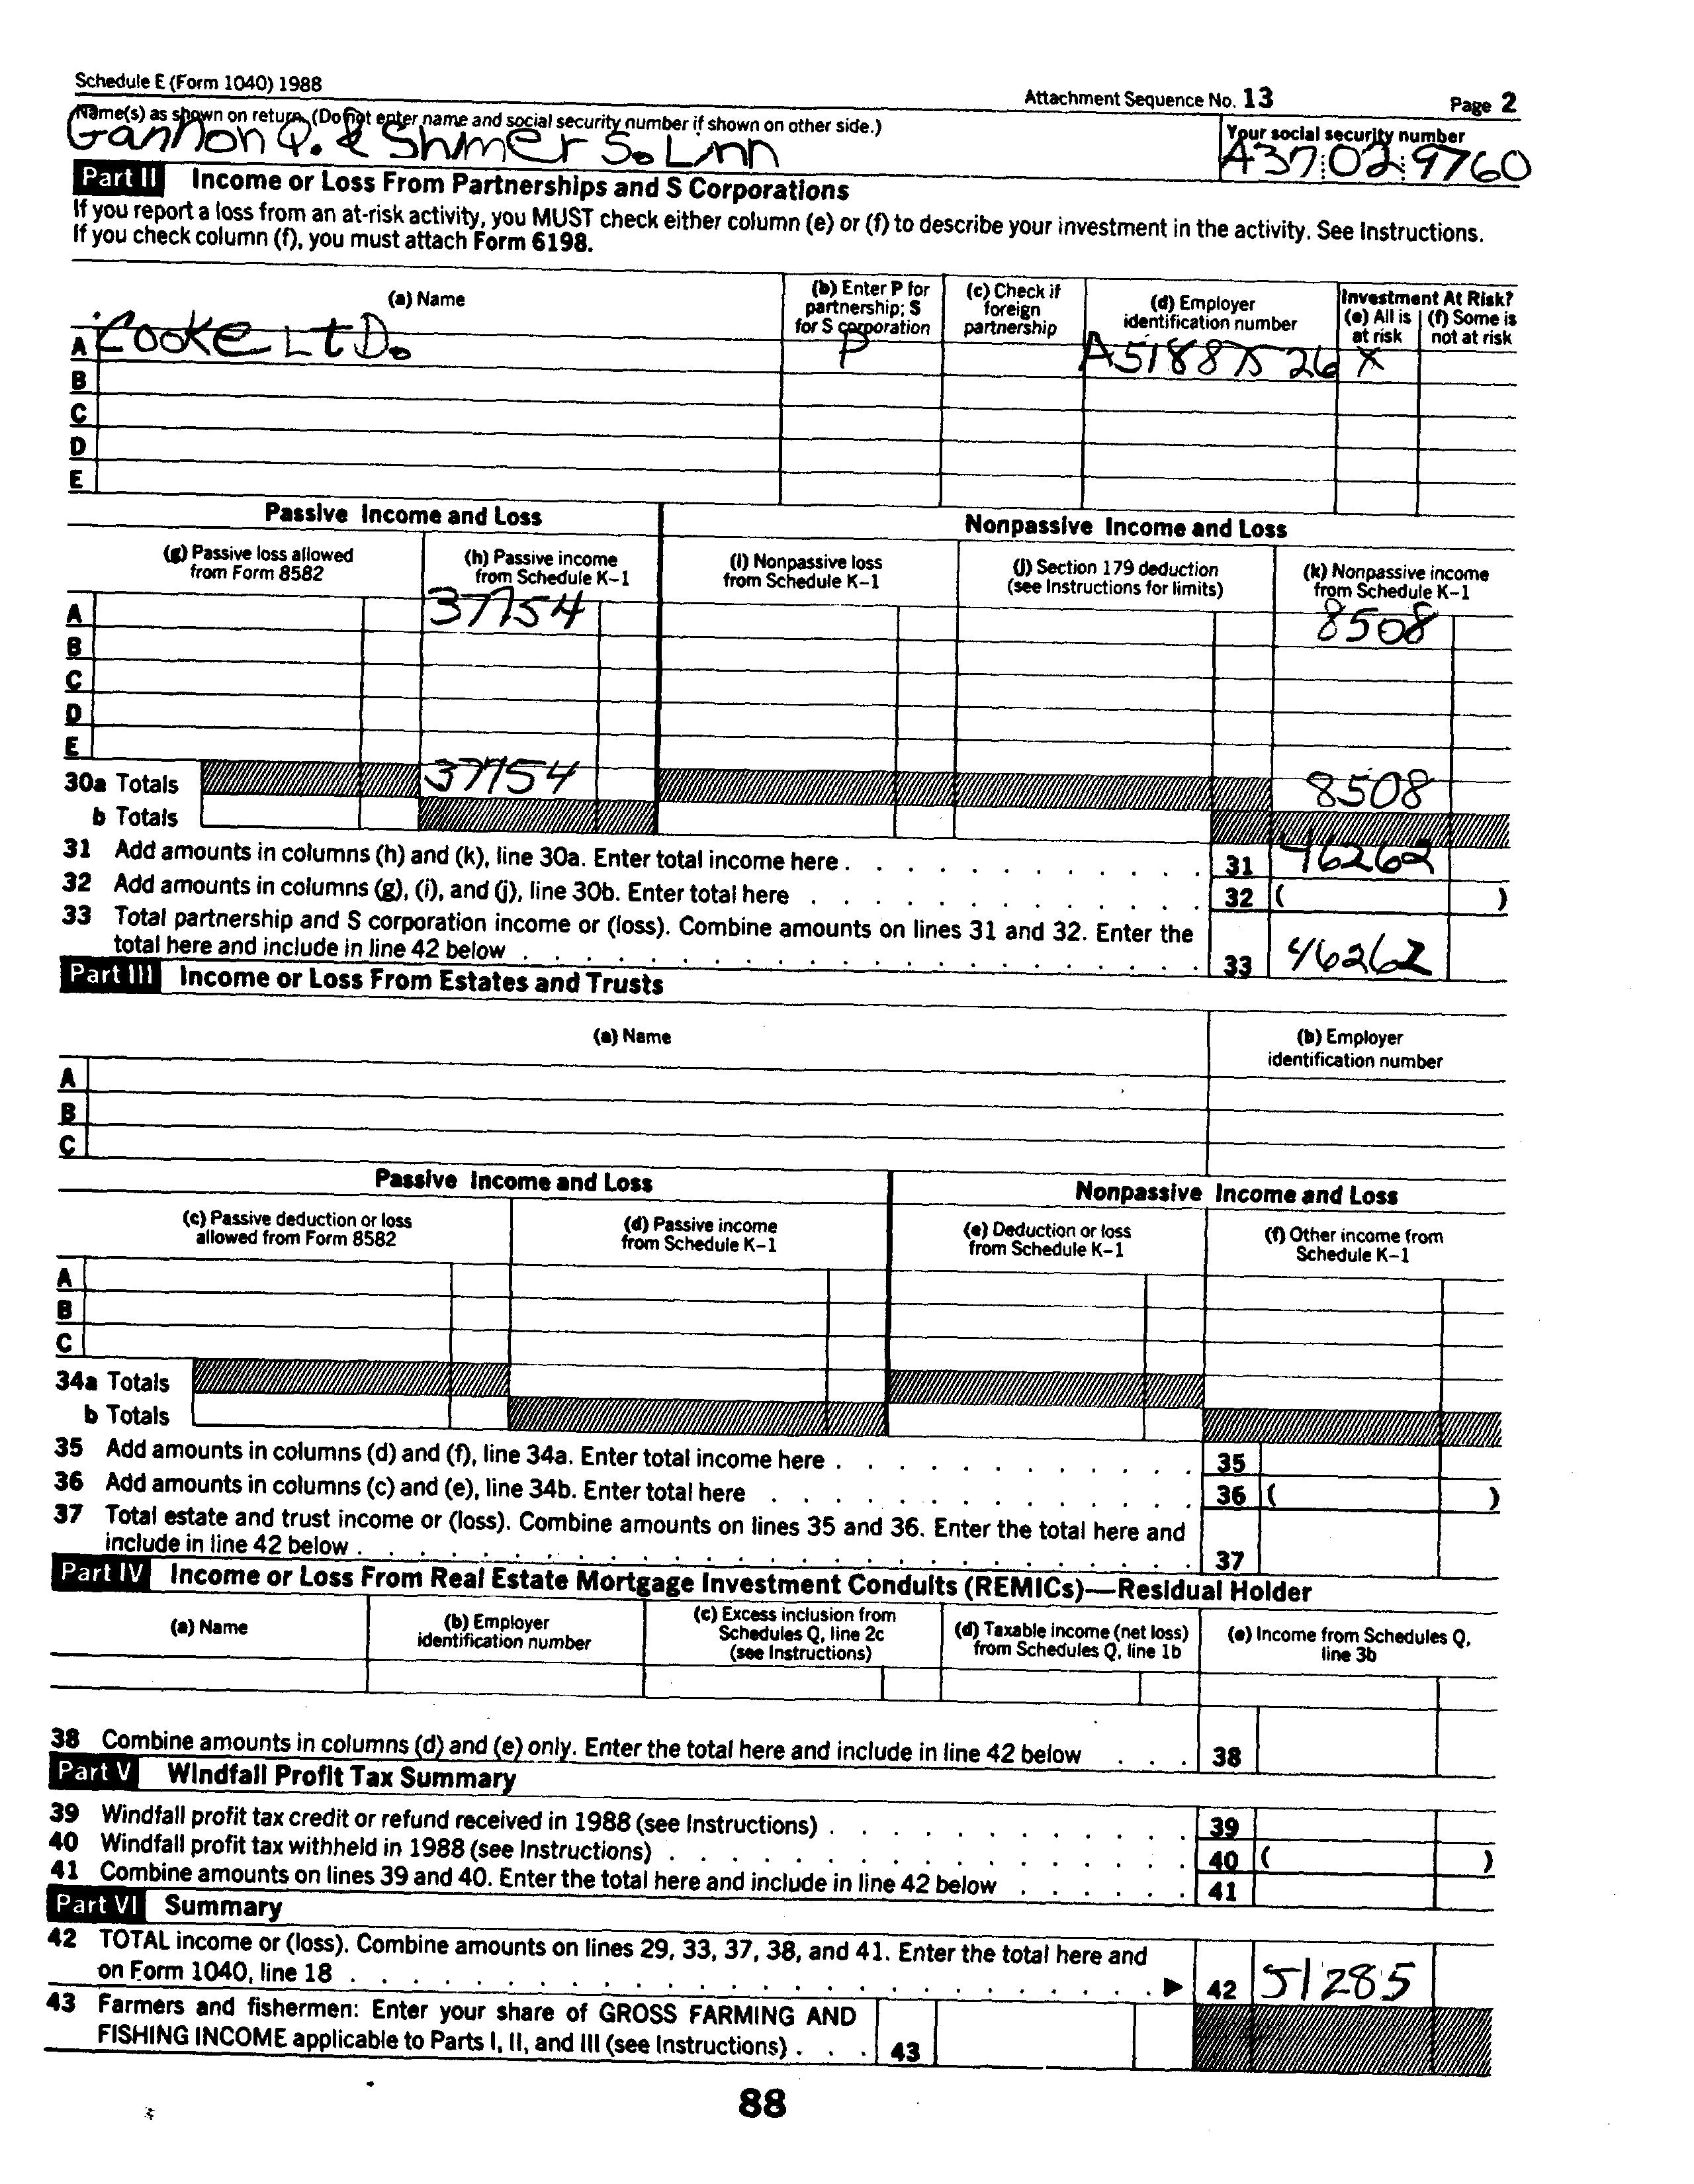 Schedule E (Form 1040) 1988
Attachment Sequence No. 13
Page 2
Name(s) as shown on return. (Do not enter name and social security number if shown on other side.)
Gannon Q. & Shmer S. Linn
Your social security number
A37 02 9760
Part II Income or Loss From Partnerships and S Corporations
If you report a loss from an at-risk activity, you MUST check either column (e) or (f) to describe your investment in the activity. See Instructions.
If you check column (f), you must attach Form 6198.
(a) Name
(b) Enter P for partnership; S for S corporation
(c) Check if foreign partnership
(d) Employer identification number
Investment At Risk?
(e) All is at risk
(f) Some is not at risk
A Cooke LtD. P A5188 26 X
B
C
D
E
Passive Income and Loss
Nonpassive Income and Loss
(g) Passive loss allowed from Form 8582
(h) Passive income from Schedule K-1
(i) Nonpassive loss from Schedule K-1
(j) Section 179 deduction (see Instructions for limits)
(k) Nonpassive income from Schedule K-1
A 37754 8508
B
C
D
E
30a Totals 37754 8508
b Totals
31 Add amounts in columns (h) and (k), line 30a. Enter total income here 31 46262
32 Add amounts in columns (g), (i), and (j), line 30b. Enter total here 32 ( )
33 Total partnership and S corporation income or (loss). Combine amounts on lines 31 and 32. Enter the
total here and include in line 42 below 33 46262
Part III Income or Loss From Estates and Trusts
(a) Name
(b) Employer identification number
A
B
C
Passive Income and Loss
Nonpassive Income and Loss
(c) Passive deduction or loss allowed from Form 8582
(d) Passive income from Schedule K-1
(e) Deduction or loss from Schedule K-1
(f) Other income from Schedule K-1
A
B
C
34a Totals
b Totals
35 Add amounts in columns (d) and (f), line 34a. Enter total income here 35
36 Add amounts in columns (c) and (e), line 34b. Enter total here 36 ( )
37 Total estate and trust income or (loss). Combine amounts on lines 35 and 36. Enter the total here and
include in line 42 below 37
Part IV Income or Loss From Real Estate Mortgage Investment Conduits (REMICs)—Residual Holder
(a) Name
(b) Employer identification number
(c) Excess inclusion from Schedules Q, line 2c (see Instructions)
(d) Taxable income (net loss) from Schedules Q, line 1b
(e) Income from Schedules Q, line 3b
38 Combine amounts in columns (d) and (e) only. Enter the total here and include in line 42 below 38
Part V Windfall Profit Tax Summary
39 Windfall profit tax credit or refund received in 1988 (see Instructions) 39
40 Windfall profit tax withheld in 1988 (see Instructions) 40 ( )
41 Combine amounts on lines 39 and 40. Enter the total here and include in line 42 below 41
Part VI Summary
42 TOTAL income or (loss). Combine amounts on lines 29, 33, 37, 38, and 41. Enter the total here and
on Form 1040, line 18 ▶ 42 51285
43 Farmers and fishermen: Enter your share of GROSS FARMING AND
FISHING INCOME applicable to Parts I, II, and III (see Instructions) 43
88